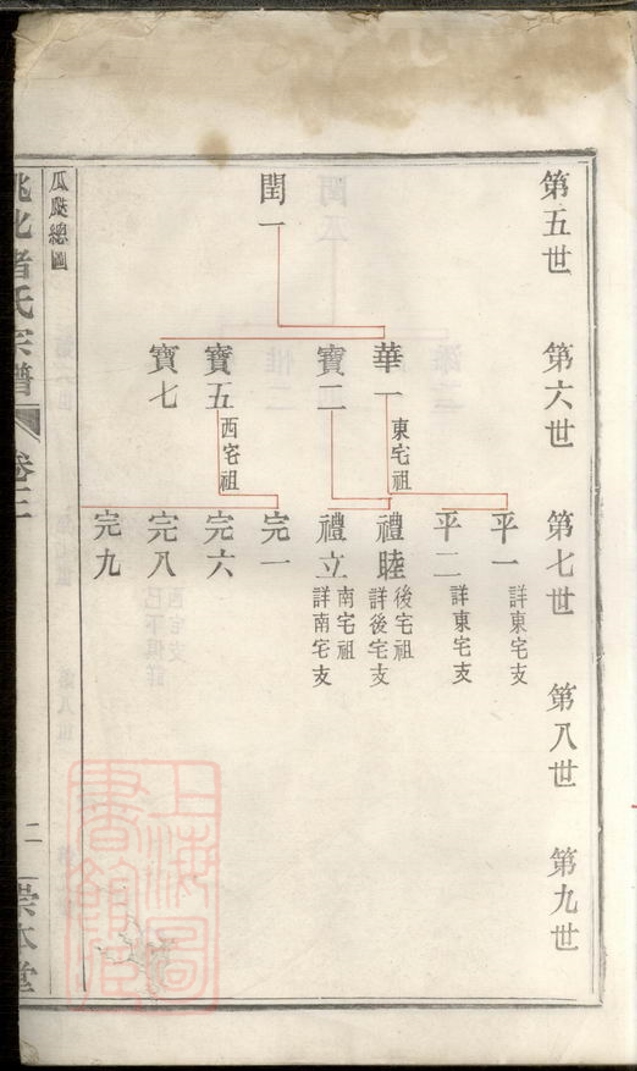 第五世
第六世
第七世
第八世
第九世
閏一
華一
東宅祖
寶二
寶五
西宅祖
寶七
平一
詳東宅支
平二
詳東宅支
禮睦
後宅祖
詳後宅支
禮立
南宅祖
詳南宅支
完一
完六
完八
完九
瓜瓞總圖
氏宗譜
卷三
二
崇本堂
上海圖書館藏